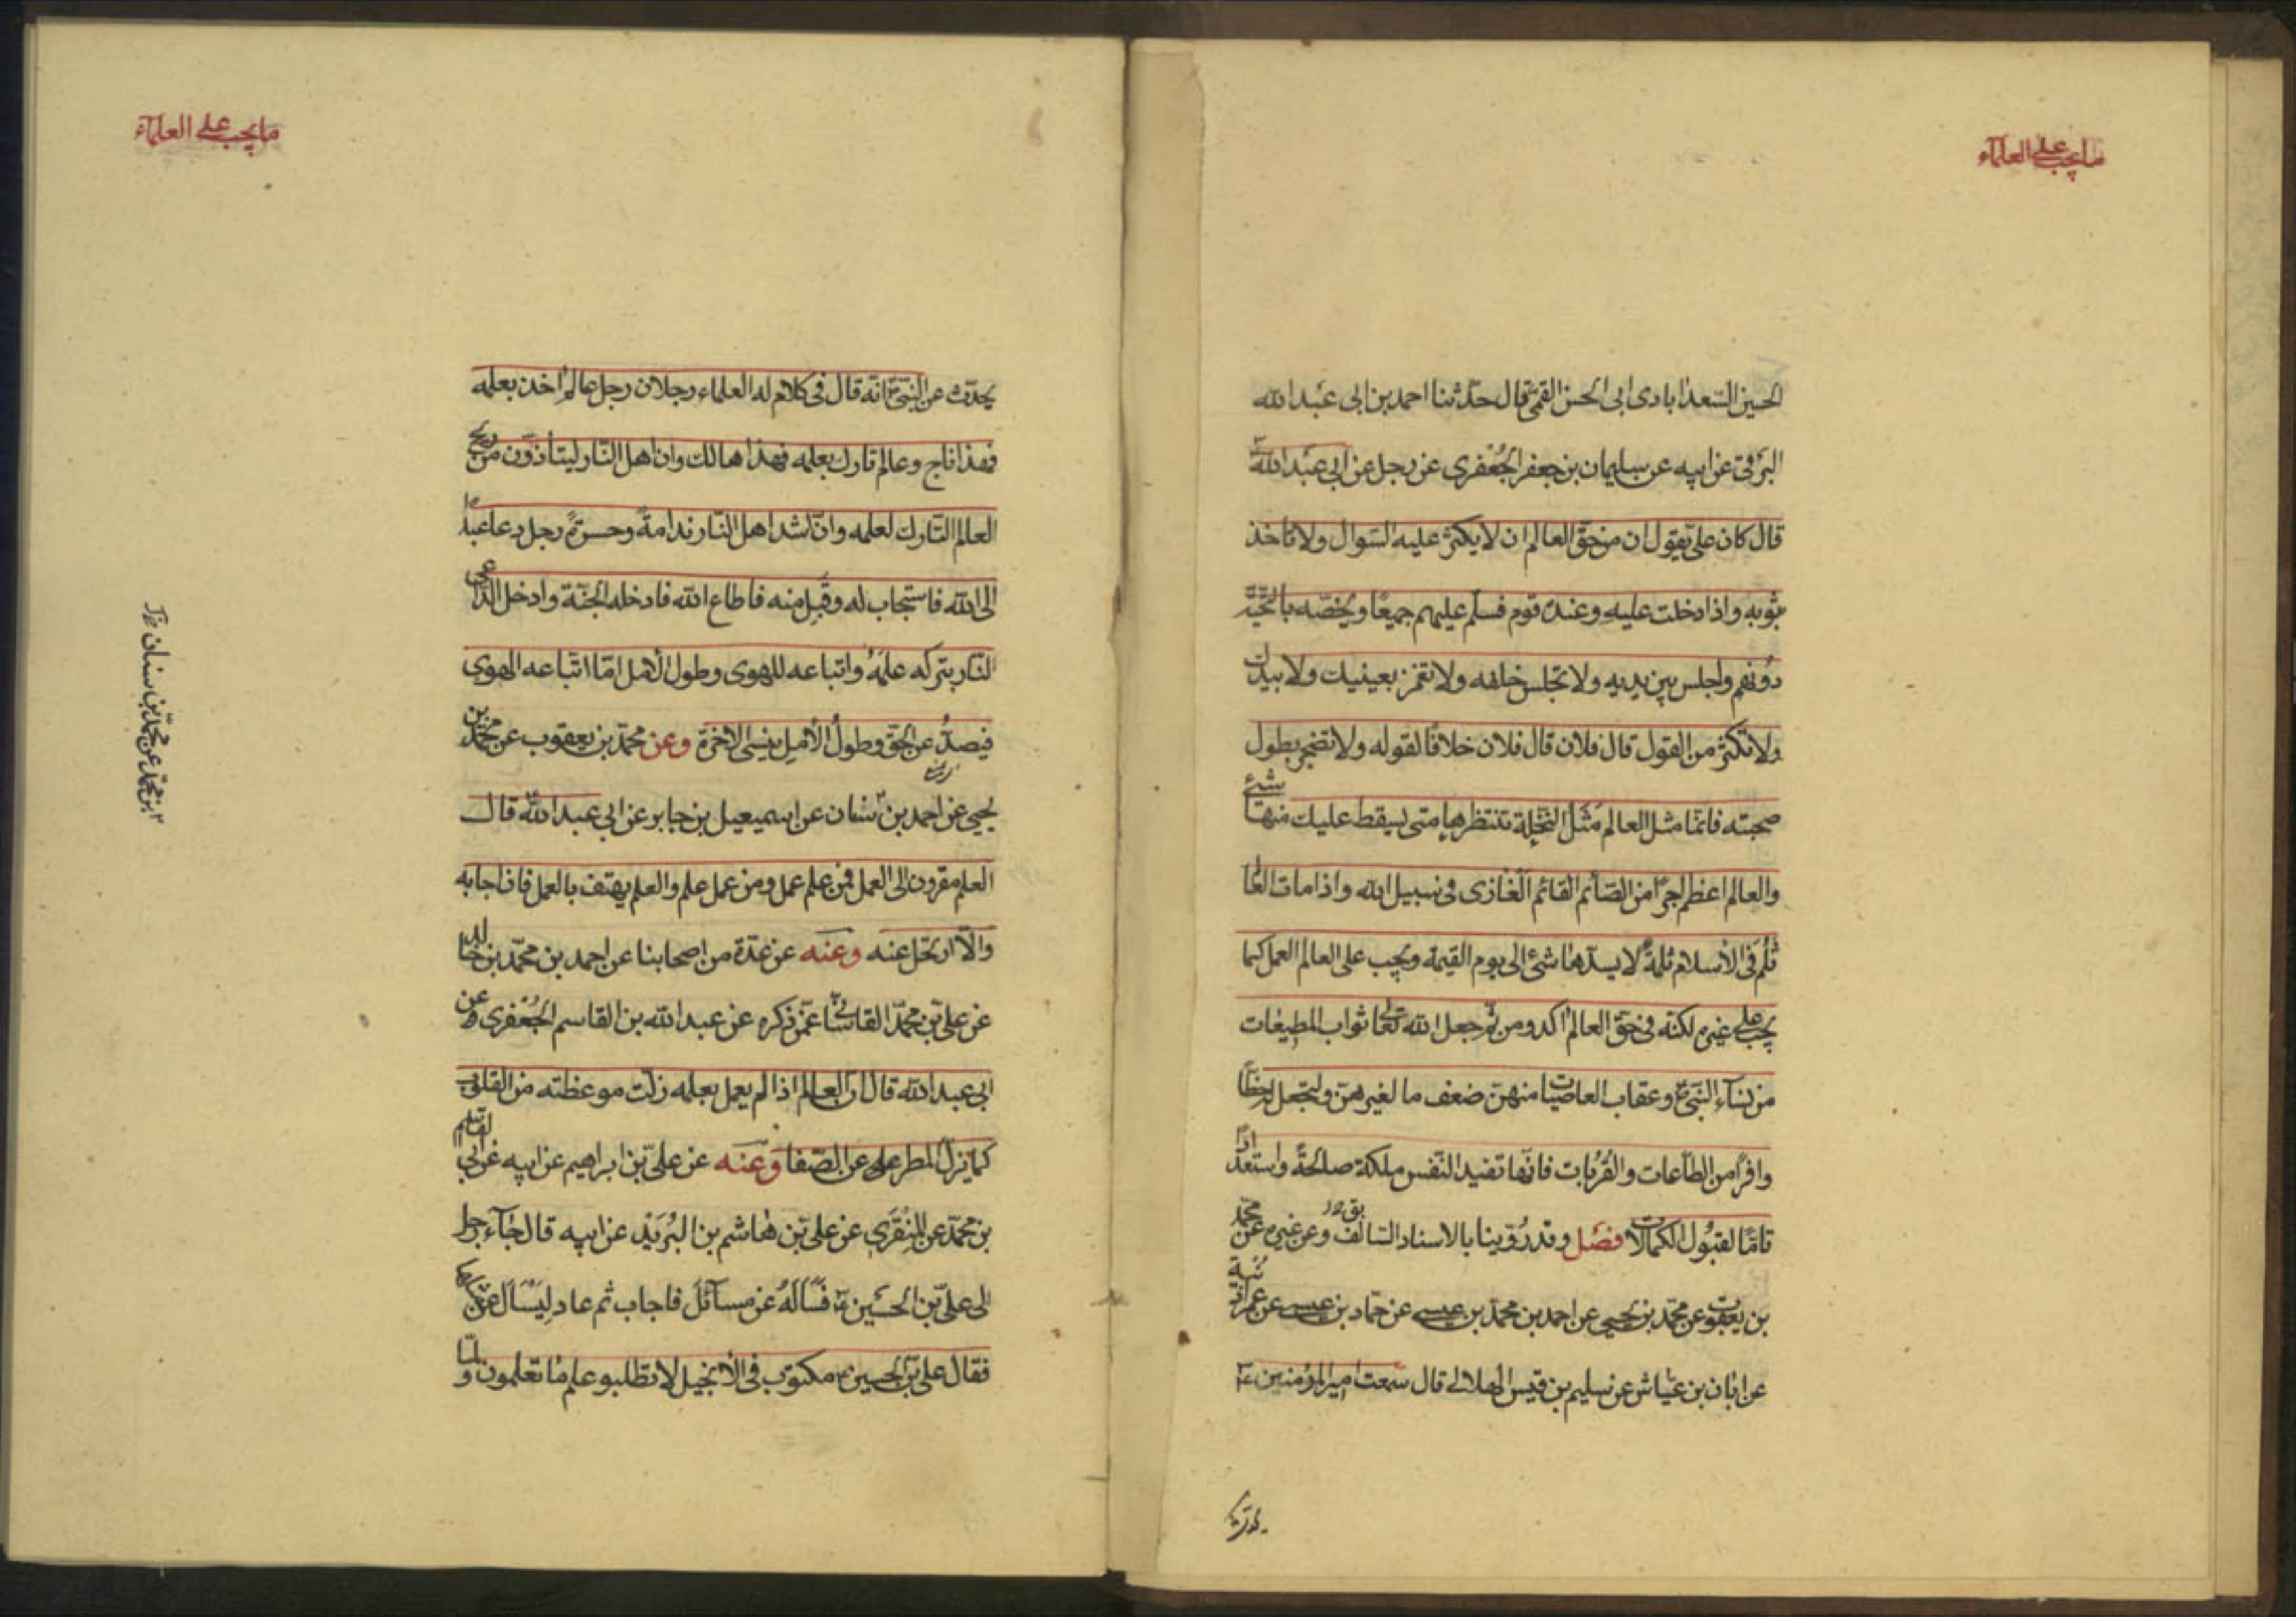 ما يجب على العلماء
الحسين السعدابادى ابى الحسن القمى قال حدثنا احمد بن ابى عبد الله
البرقى عن ابيه عن سليمان بن جعفر الجعفرى عن رجل عن ابى عبد الله ع
قال كان على ع يقول ان من حق العالم ان لا يكثر عليه السوال ولا تاخذ
بثوبه واذا دخلت عليه وعنده قوم فسلم عليهم جميعًا ويخصه بالتحية
دونهم واجلس بين يديه ولا تجلس خلفه ولا تغمز بعينيك ولا بيدك
ولا تكثر من القول قال فلان قال فلان خلافًا لقوله ولا تضجر بطول
صحبته فانما مثل العالم مَثَل النخلة تنتظرها متى يسقط عليك منها شئ
والعالم اعظم اجرًا من الصآئم القائم الغازى فى سبيل الله واذا مات العالم
ثُلُم فى الاسلام ثلمة لا يسدها شئ الى يوم القيمة ويجب على العالم العمل كما
يجب على غيره لكنه فى حق العالم اكد ومن ثم جعل الله تعالى ثواب المطيعات
من نسآء النبى ص وعقاب العاصيات منهن ضعف ما لغيرهن وليجعل له حظًّا
وافرًا من الطاعات والقربات فانها تفيد النفس ملكة صالحةً واستعدادًا
تامًّا لقبول الكمالات فصل وقد رُوّينا بالاسناد السالف وعن غيره عن محمد
بن يعقوب عن محمد بن يحيى عن احمد بن محمد بن عيسى عن حماد بن عيسى عن عمر بن اذينة
عن ابان بن عياش عن سليم بن قيس الهلالى قال سمعت امير المؤمنين ع
يحدث
ما يجب على العلماء
يحدث عن النبى ص انه قال فى كلام له العلماء رجلان رجل عالم اخذ بعلمه
فهذا ناج وعالم تارك بعلمه فهذا هالك وان اهل النار ليتاذون من ريح
العالم التارك لعلمه وان اشد اهل النار ندامةً وحسرةً رجل دعا عبدًا
الى الله فاستجاب له وقَبِل منه فاطاع الله فادخله الجنة وادخل الداعى
النار بتركه علمَهُ واتباعه للهوى وطول الامل امّا اتّباعه الهوى
فيصدُّ عن الحق وطولُ الأمل ينسى الاخرة وعن محمد بن يعقوب عن محمد بن
يحيى عن احمد بن سنان عن اسميعيل بن جابر عن ابى عبد الله قال
العلم مقرون الى العمل فمن علم عمل ومن عمل علم والعلم يهتف بالعمل فان اجابه
والّا ارتحل عنه وعنه عن عدة من اصحابنا عن احمد بن محمد بن خالد
عن على بن محمد القاسانى عمن ذكره عن عبد الله بن القاسم الجعفرى وعن
ابى عبد الله قال ان العالم اذا لم يعمل بعلمه زلت موعظته من القلوب
كما يزل المطر عن الصفا وعنه عن على بن ابراهيم عن ابيه عن القاسم
بن محمد عن المنقرى عن على بن هاشم بن البُرَيد عن ابيه قال جآء رجل
الى على بن الحسين ع فسَأَلَهُ عن مسآئل فاجاب ثم عاد ليَسْأَل عن مثلها
فقال على بن الحسين ع مكتوب فى الانجيل لا تطلبو علم ما تعلمون ولمّا
بن محمد عن محمد بن سنان